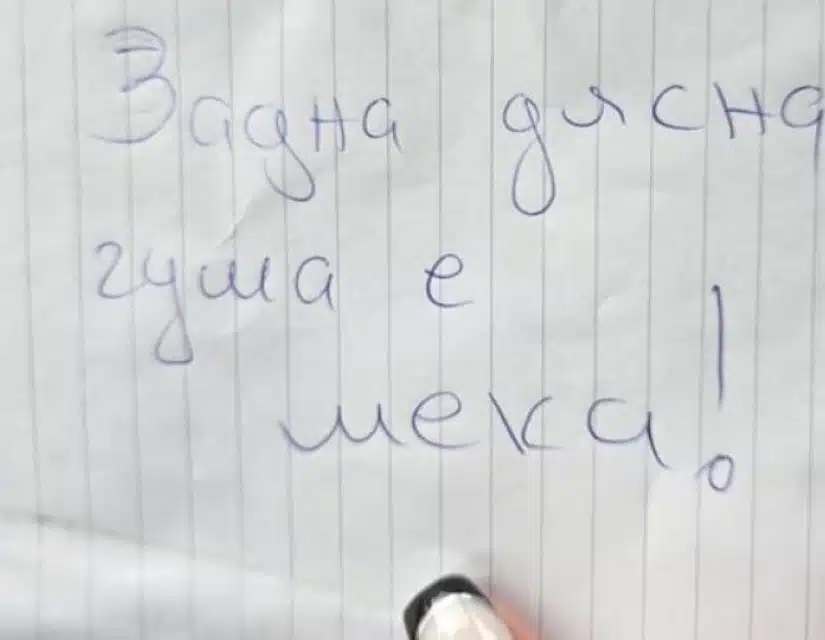 Задна дясна
гума е
мека!